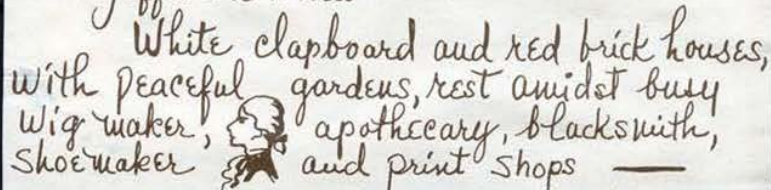 White clapboard and red brick houses,
with peaceful gardens, rest amidst busy
wig maker, apothecary, blacksmith,
shoemaker and print shops —